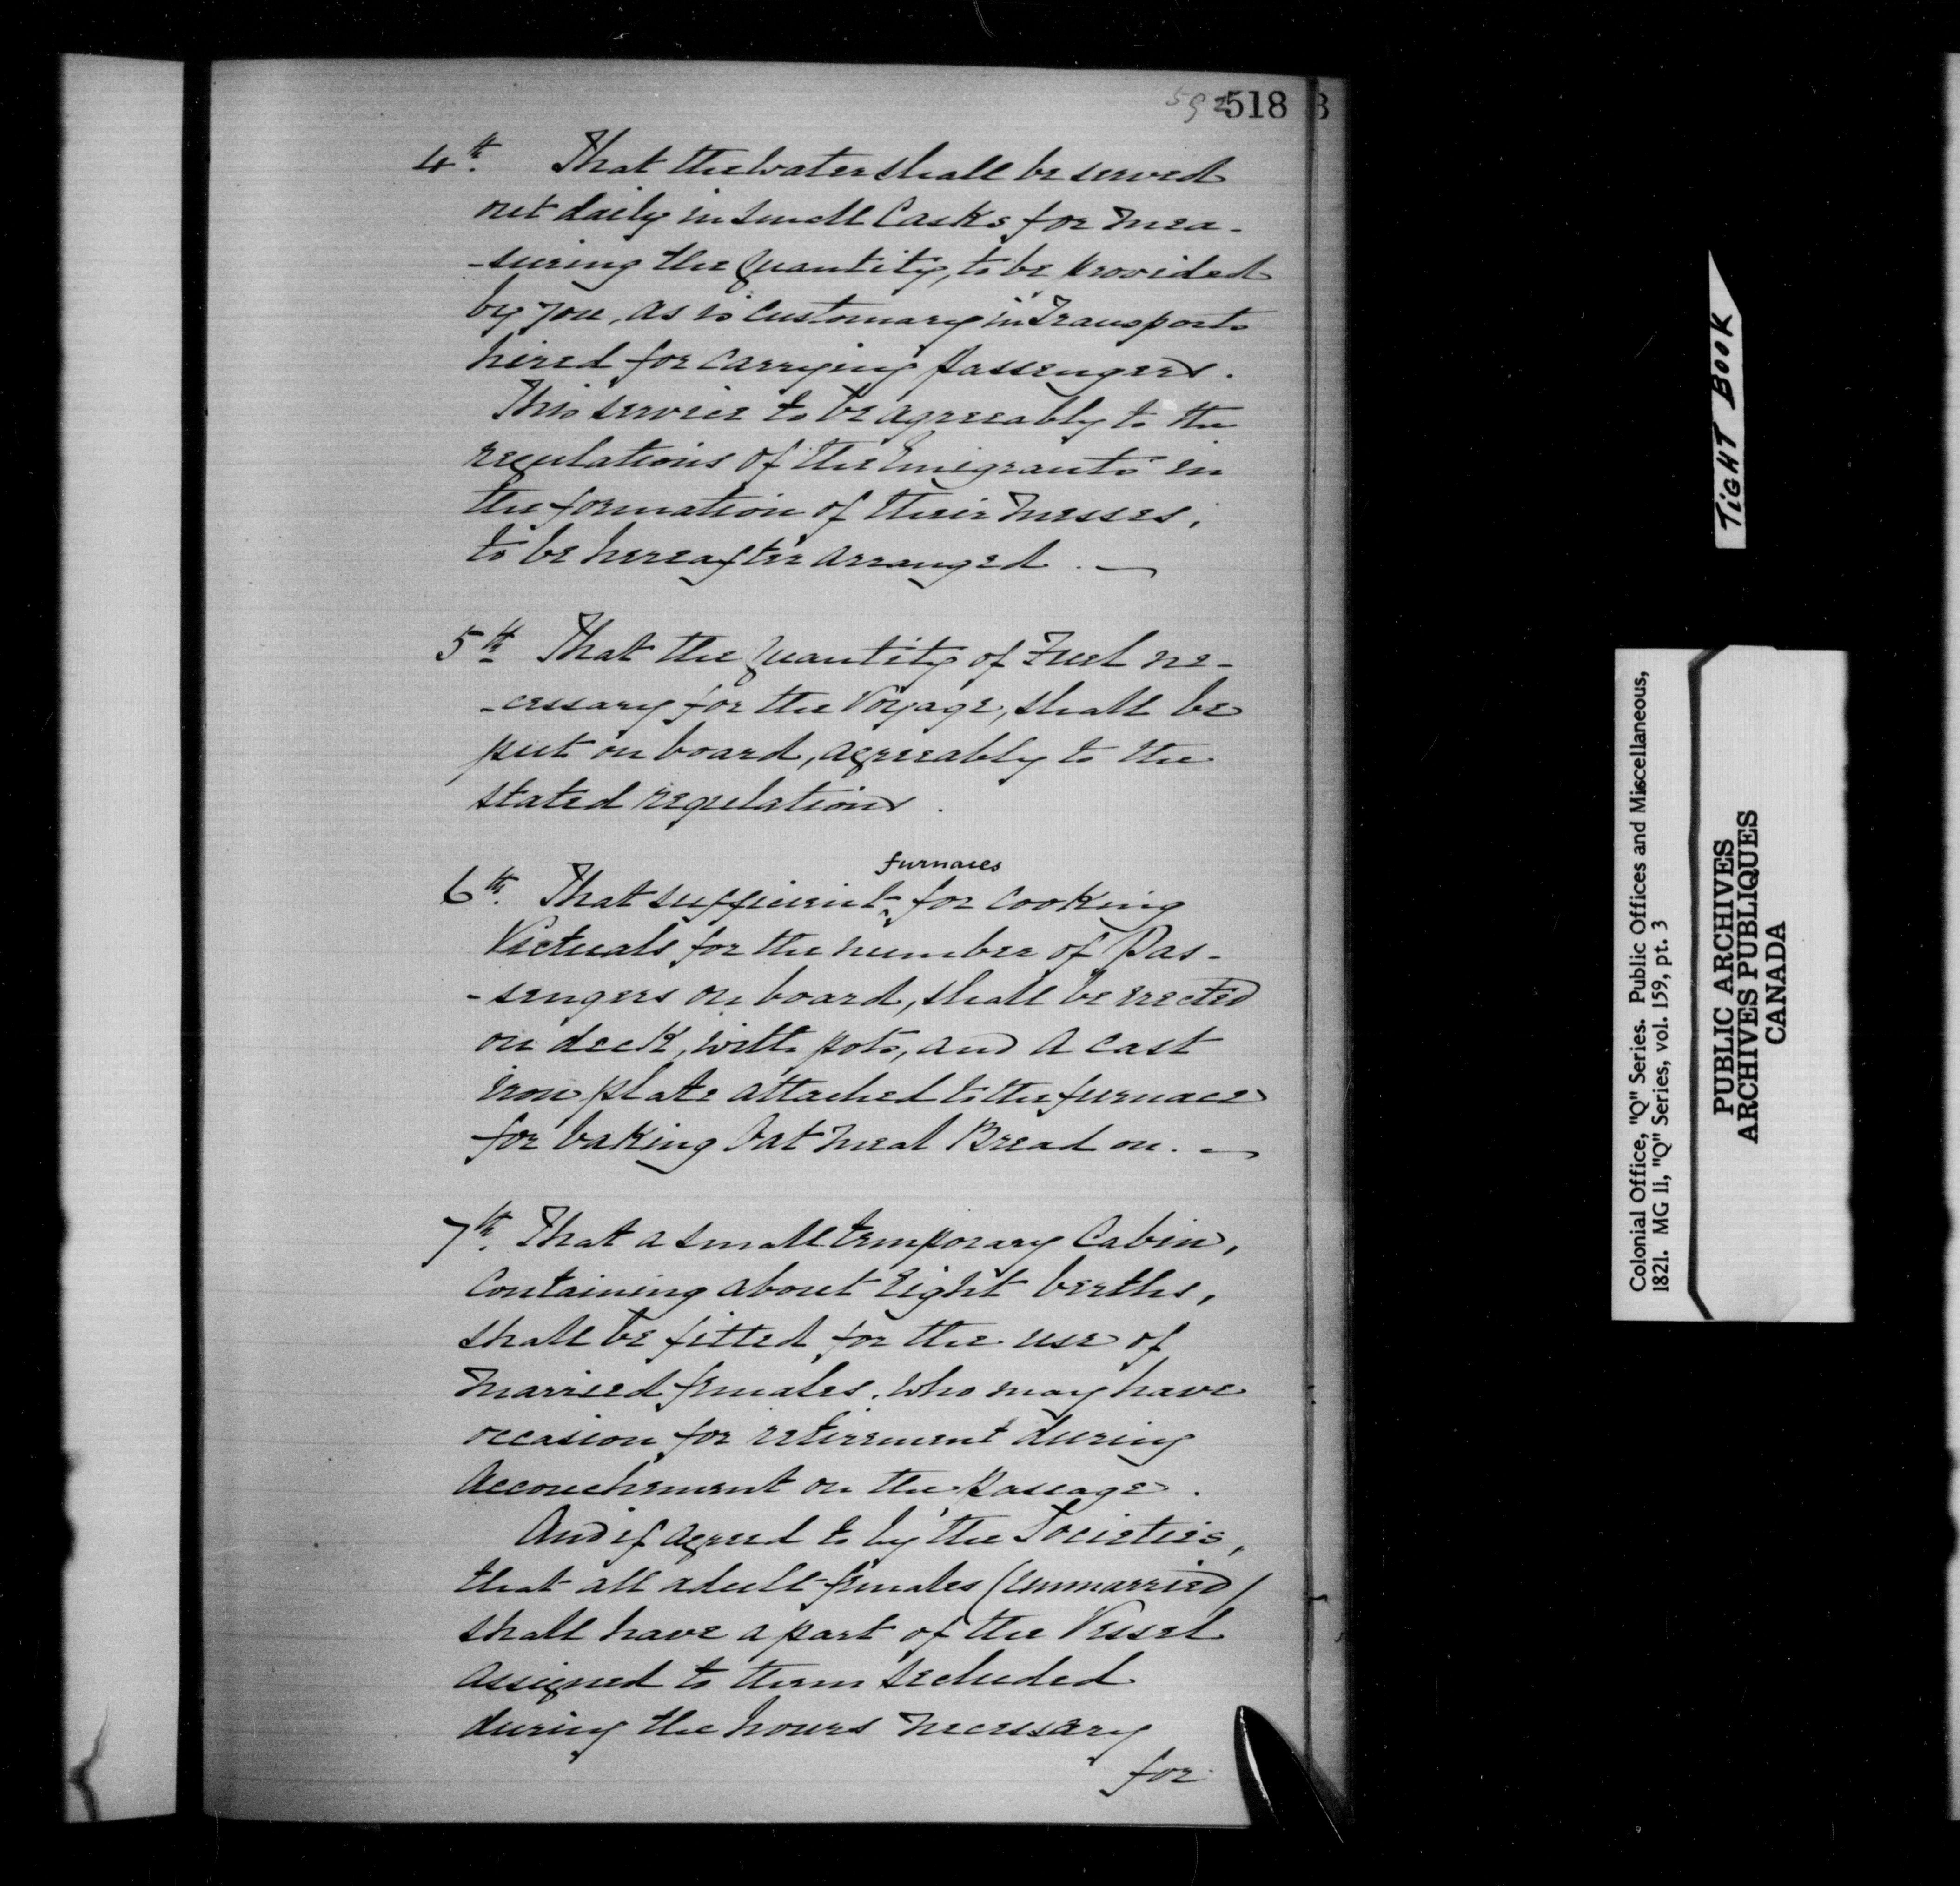 518
4th. That the water shall be served
out daily in small Casks for mea-
-suring the Quantity, to be provided
by you, as is customary in Transports
hired for carrying passengers.
This service to be agreeably to the
regulations of the Emigrants in
the formation of their messes,
to be hereafter arranged. —
5th That the Quantity of Fuel ne-
-cessary for the Voyage, shall be
put on board, agreeably to the
stated regulations.
furnaces
6th. That sufficient ^ for cooking
Victuals for the number of Pas-
-sengers on board, shall be erected
on deck, with pots, and a cast
iron plate attached to the furnace
for baking Oat meal Bread on. —
7th. That a small temporary Cabin,
containing about Eight berths,
shall be fitted for the use of
married females, who may have
occasion for retirement during
Accouchement on the passage.
And if agreed to by the Societies,
that all adult females (unmarried)
shall have a part of the Vessel
assigned to them secluded
during the hours necessary
for
TIGHT BOOK
Colonial Office, "Q" Series. Public Offices and Miscellaneous,
1821. MG 11, "Q" Series, vol. 159, pt. 3
PUBLIC ARCHIVES
ARCHIVES PUBLIQUES
CANADA